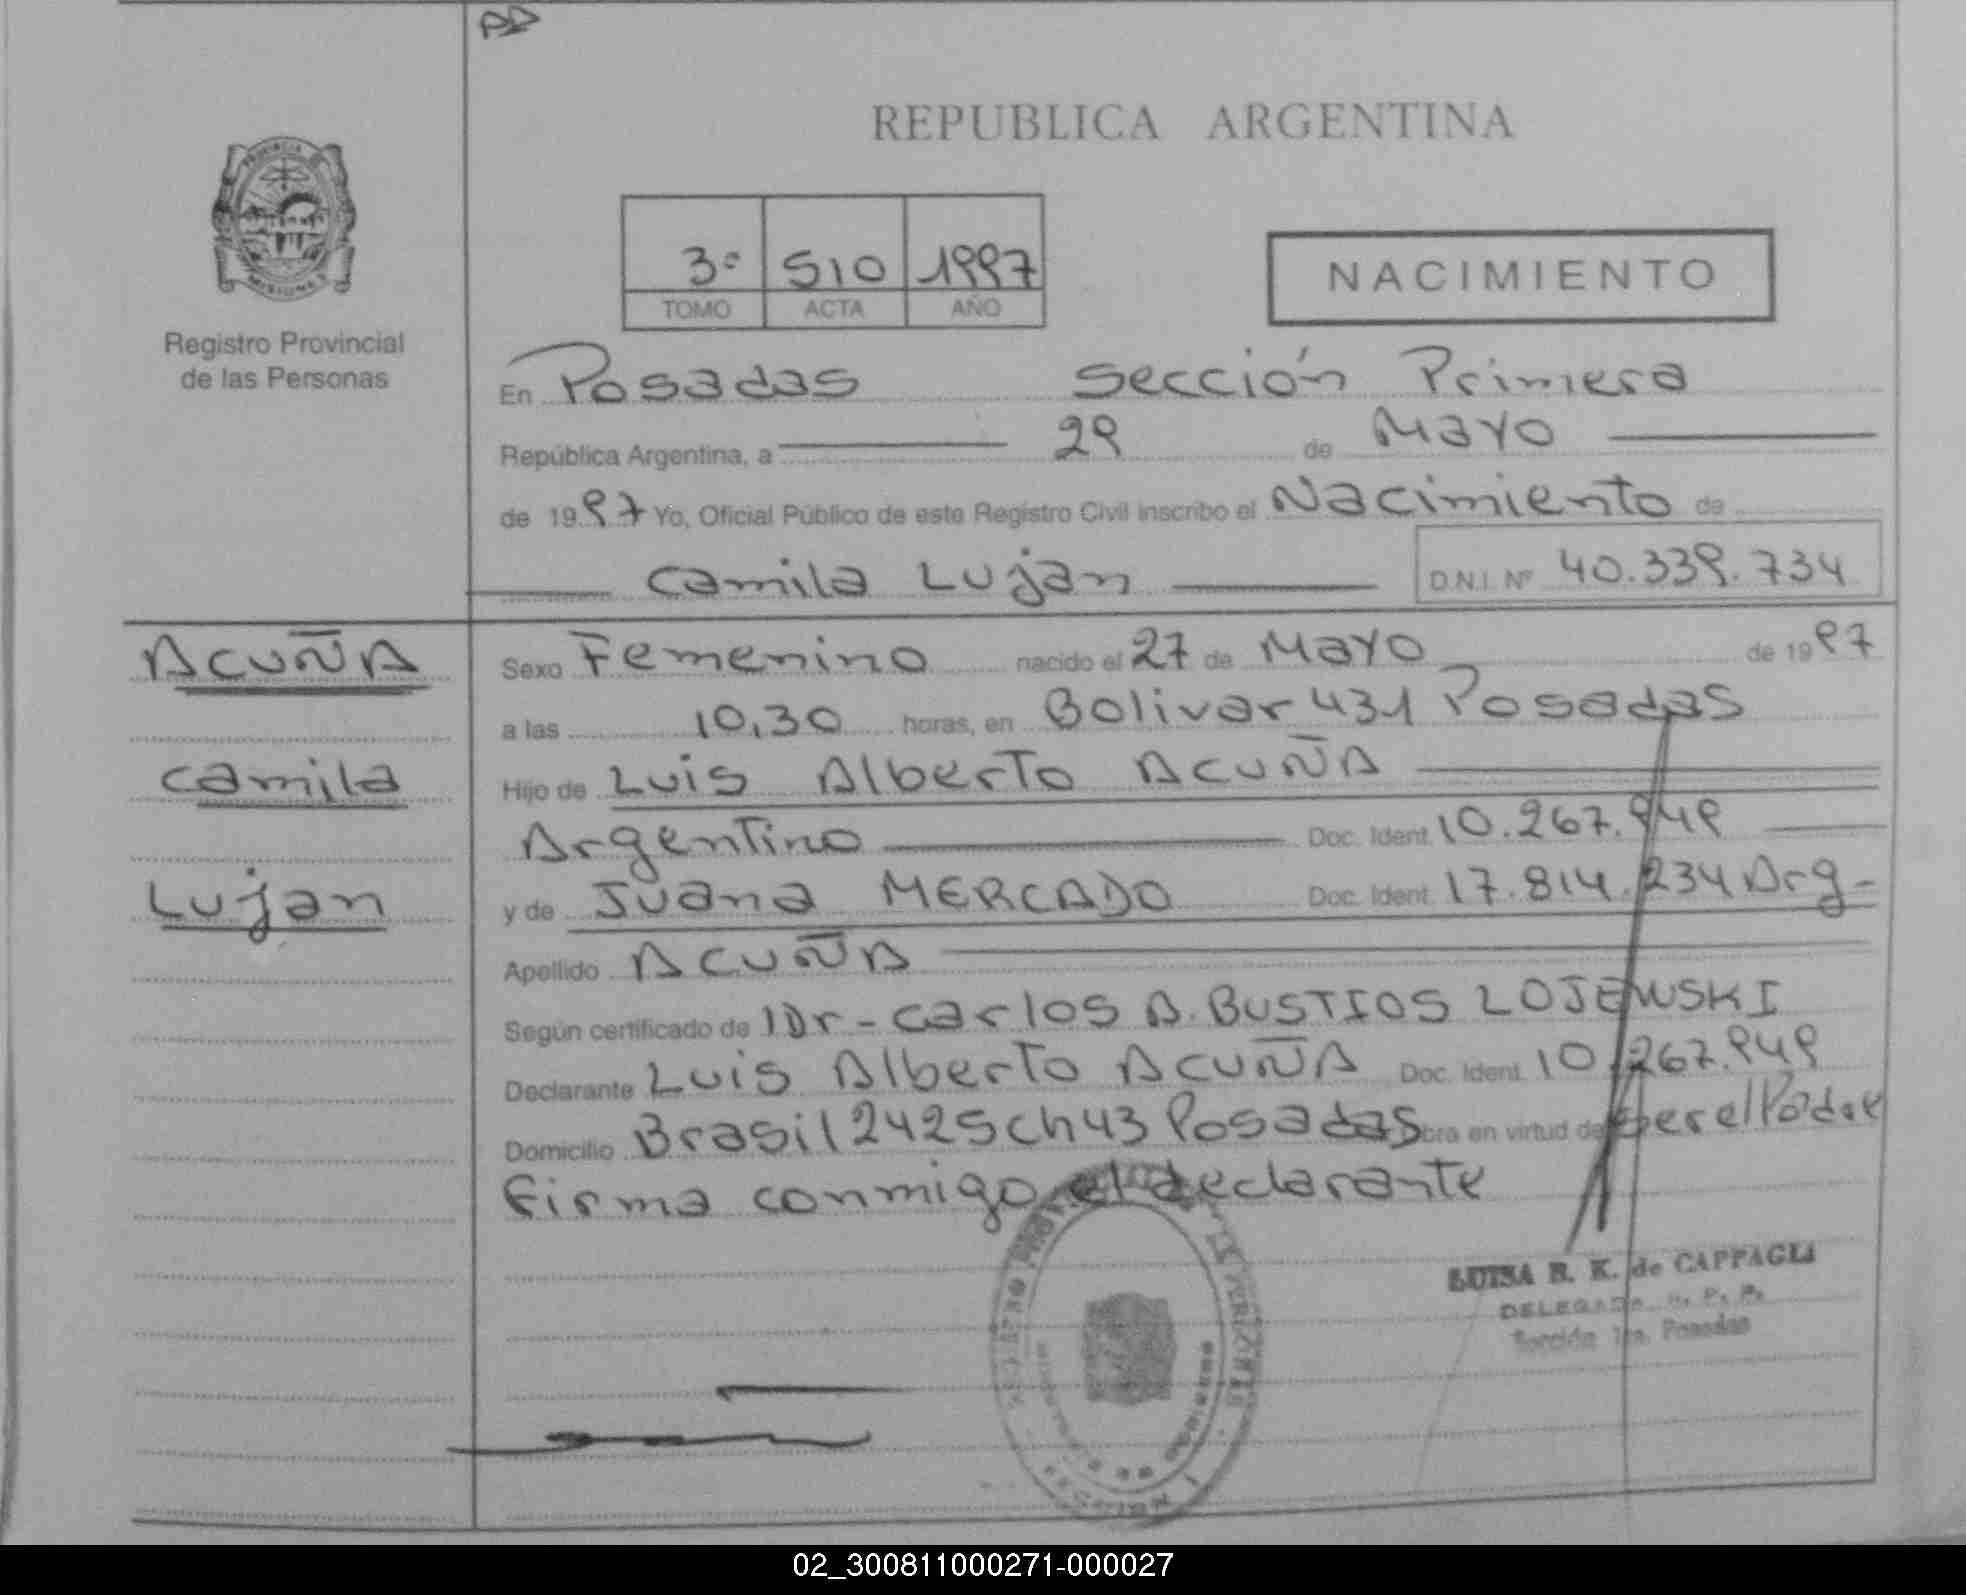 PD
REPUBLICA ARGENTINA
PROVINCIA DE
MISIONES
Registro Provincial
de las Personas
3º 510 1997
TOMO ACTA AÑO
NACIMIENTO
En Posadas sección Primera
República Argentina, a 29 de Mayo
de 1997 Yo, Oficial Público de este Registro Civil inscribo el Nacimiento de
Camila Lujan D.N.I. Nº 40.339.734
ACUÑA
Camila
Lujan
Sexo Femenino nacido el 27 de Mayo de 1997
a las 10,30 horas, en Bolivar 431 Posadas
Hijo de Luis Alberto ACUÑA
Argentino Doc. Ident. 10.267.949
y de Juana MERCADO Doc. Ident. 17.814.234 Arg-
Apellido ACUÑA
Según certificado de Dr-Carlos A. BUSTIOS LOJEWSKI
Declarante Luis Alberto ACUÑA Doc. Ident. 10.267.949
Domicilio Brasil 2425 ch 43 Posadas obra en virtud de ser el Padre
Firma conmigo el declarante
LUISA B. K. de CAPPAGLI
DELEGADA R. P. P.
Sección 1ra. Posadas
02_300811000271-000027